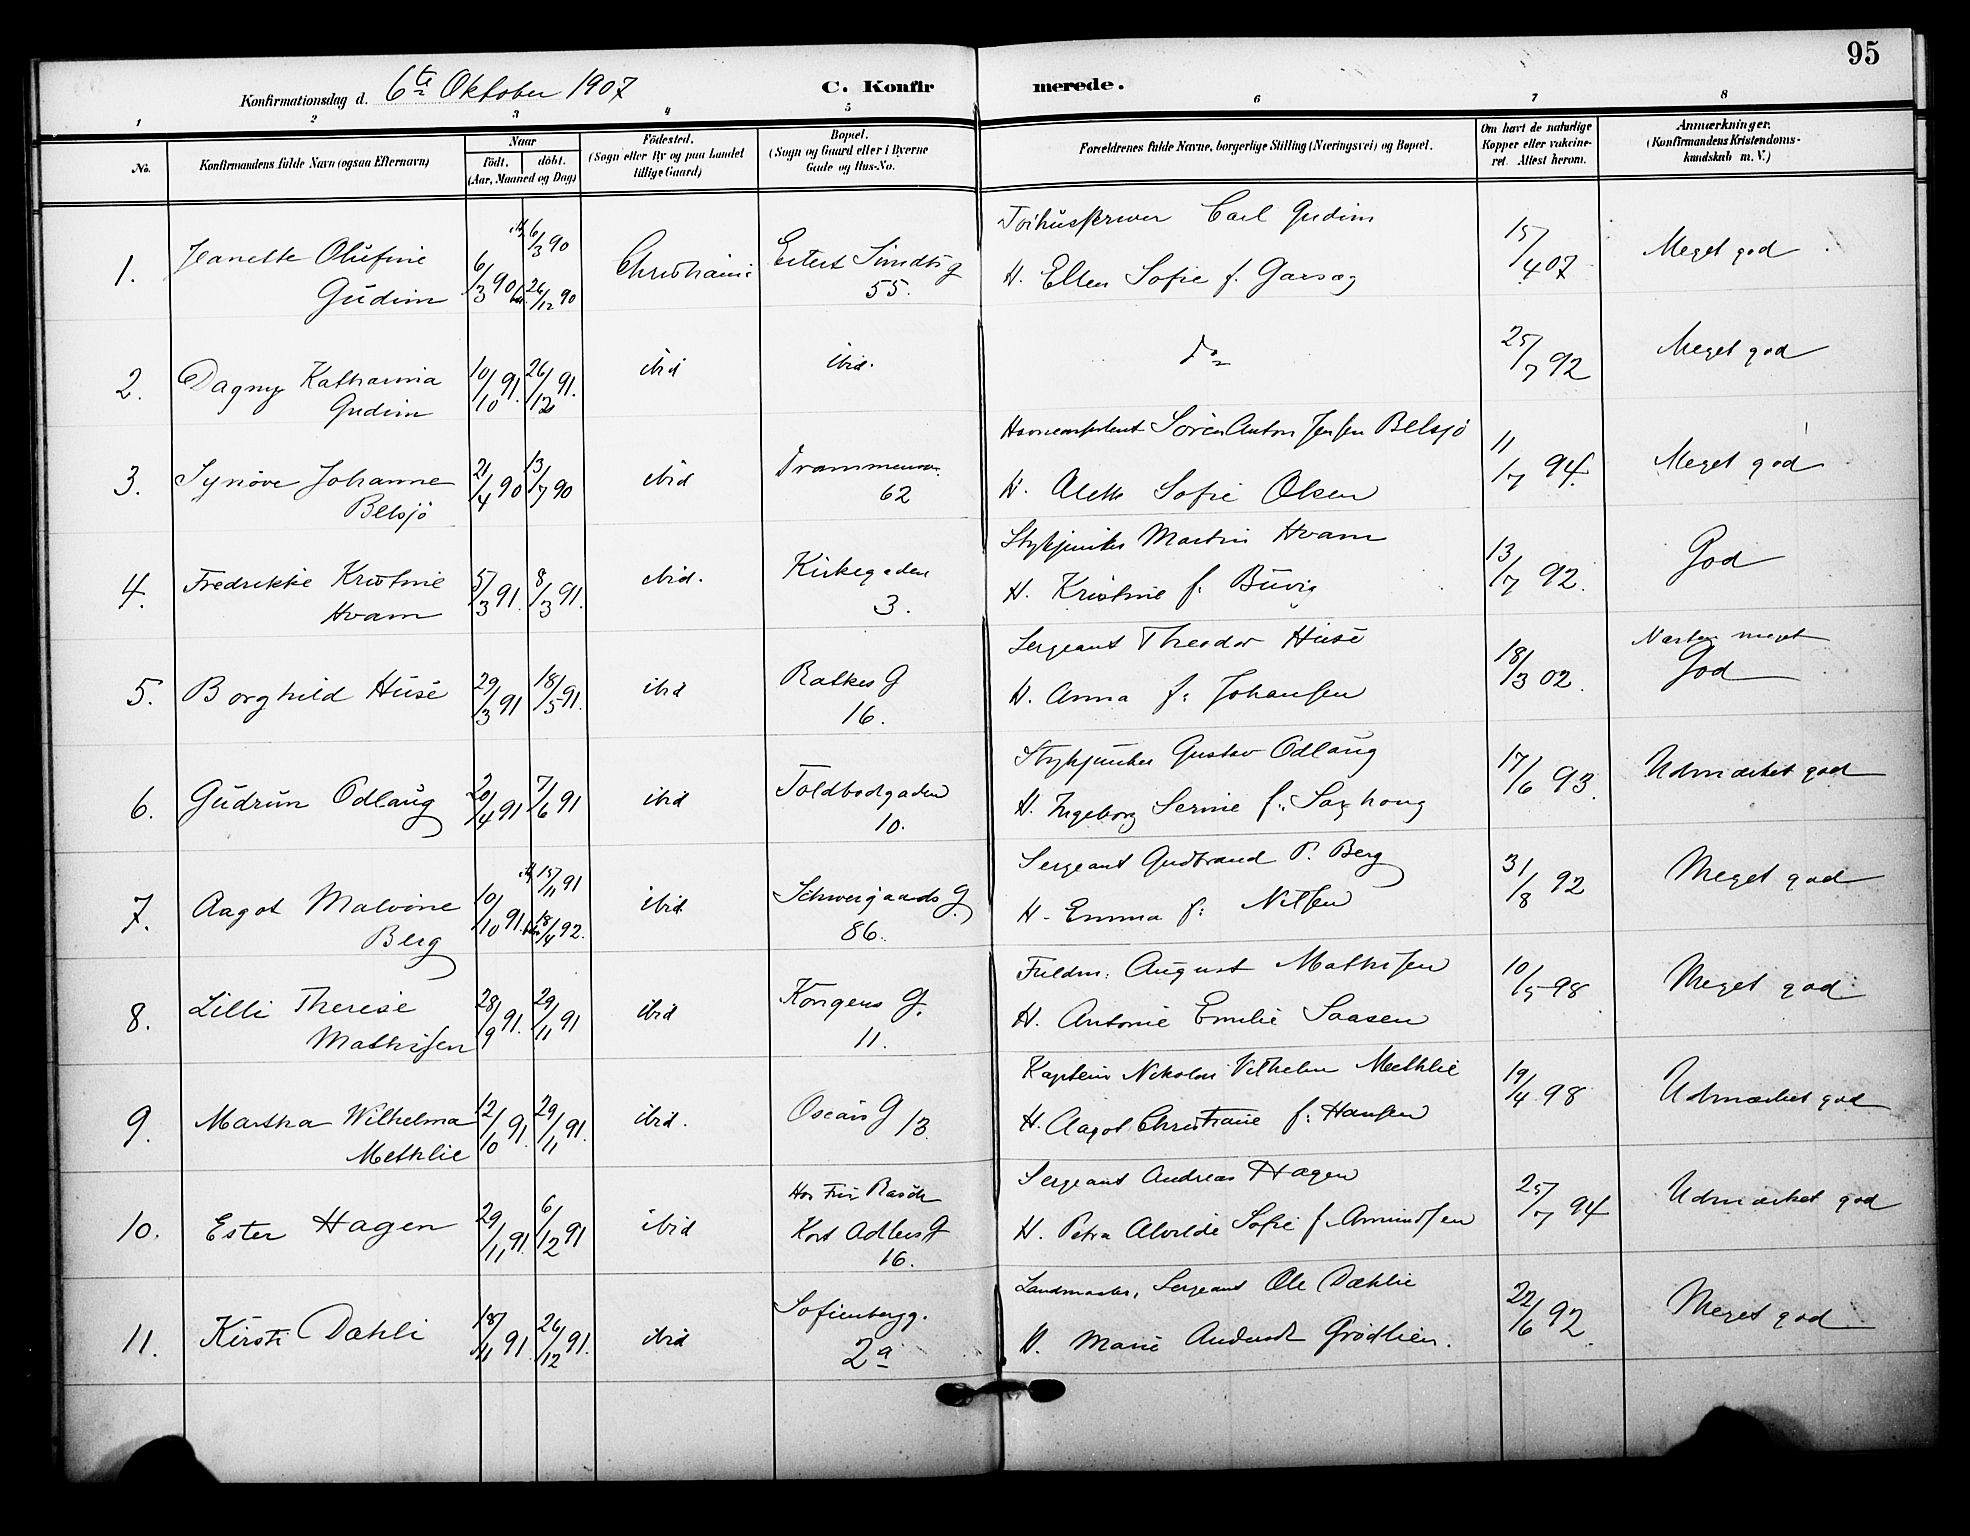 95
Konfirmationsdag d. 6te Oktober 1907
C. Konfirmerede.
1 2 3 4 5 6 7 8
No.
Konfirmandens fulde Navn (ogsaa Efternavn)
Naar
født. døbt.
(Aar, Maaned og Dag)
Fødested.
(Sogn eller By og paa Landet
tillige Gaard)
Bopæl.
(Sogn og Gaard eller i Byerne
Gade og Hus-No.
Forældrenes fulde Navne, borgerlige Stilling (Næringsvei) og Bopæl.
Om havt de naturlige
Kopper eller vakcine-
ret. Attest herom.
Anmærkninger.
(Konfirmandens Kristendoms-
kundskab m. V.)
1. Jeanette Olufine
Gudim
6/3 90
6/3 90
26/12 90
Christiania
Eilert Sundts g
55.
Tøihusskriver Carl Gudim
H. Ellen Sofie f.
15/4 07
Meget god
2. Dagny Katharina
Gudim
10/10 91.
26/12 91.
ibid
ibid.
do
25/7 92
Meget god
3. Synøve Johanne
Belsjö
21/4 90
13/7 90
ibid
62
Søren Anton Jensen Belsjö
H. Alette Sofie Olsen
11/7 94.
Meget god
4. Fredrikke Kristine
Hvam
5/3 91.
8/3 91.
ibid.
Kirkegaden
3.
Stykjunker Martin Hvam
H. Kristine f. Buvig
13/7 92.
God
5. Borghild Huse
29/3 91
18/5 91.
ibid
Ratkes G
16.
Sergeant Theodor Huse
H. Anna f: Johansen
18/3 02.
Næsten meget
God
6. Gudrun Odlaug
20/4 91
7/6 91
ibid
Toldbodgaden
10.
Stykjunker Gustav Odlaug
H. Ingeborg Serine f.
17/6 93.
Udmærket god
7. Aagot Malvine
Berg
10/10 91.
15/11 91
18/4 92.
ibid
Schweigaards G.
86.
Sergeant Gudbrand P. Berg
H. Emma f: Nilsen
31/8 92
Meget god
8. Lilli Therese
Mathisen
28/9 91.
29/11 91
ibid
Kongens G.
11.
Fuldm. August Mathisen
H. Antonie Emilie Saasen
10/5 98
Meget god
9. Martha Wilhelma
Methlie
12/10 91.
29/11 91.
ibid.
Oscars G 13.
Kaptein Nikolai Vilhelm Methlie
H. Aagot Christiane f: Hansen
19/4 98
Udmærket god
10. Ester Hagen
29/11 91
6/12 91
ibid
Hos Fru Rasch
Kort Adlers G
16.
Sergeant Andreas Hagen
H. Petra Alvilde Sofie f. Amundsen
25/7 94
Udmærket god
11. Kirsti Dæhli
18/11 91
26/12 91.
ibid
Sofienbergg.
2a
Sergeant Ole Dæhlie
H. Marie Andersdt Grødlien.
22/6 92
Meget god